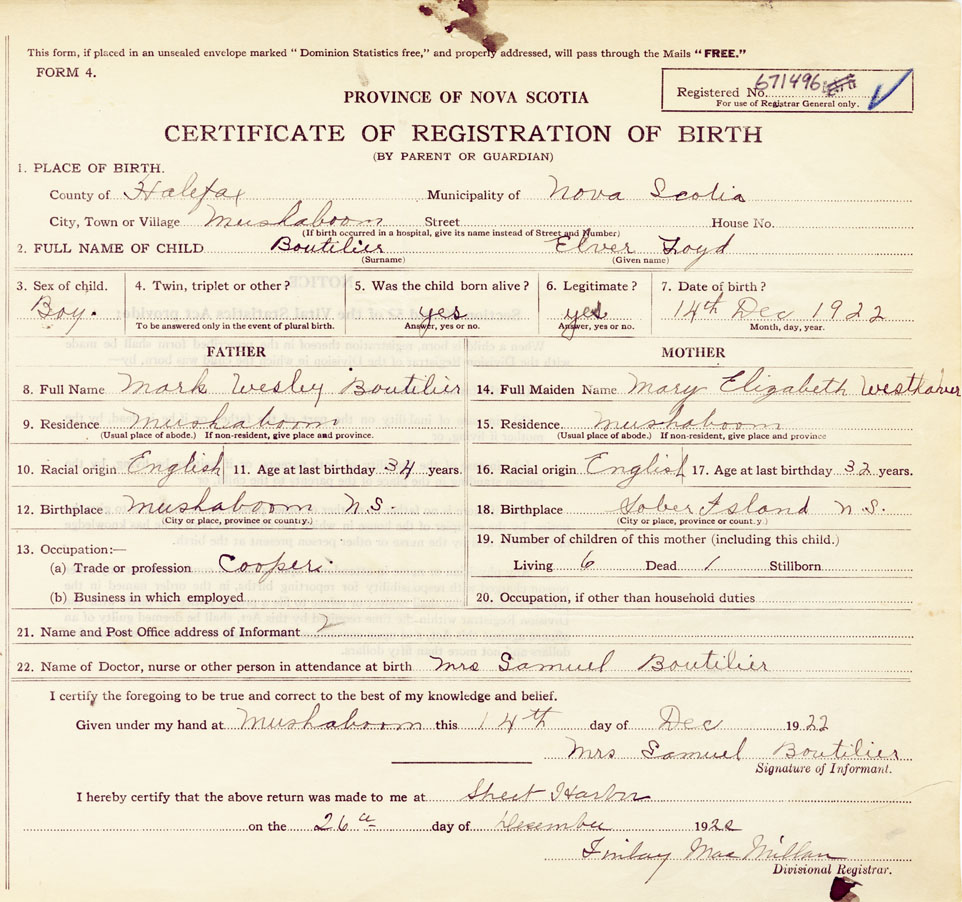 This form, if placed in an unsealed envelope marked "Dominion Statistics free," and properly addressed, will pass through the Mails "FREE."
FORM 4.
Registered No. 671496
For use of Registrar General only.
PROVINCE OF NOVA SCOTIA
CERTIFICATE OF REGISTRATION OF BIRTH
(BY PARENT OR GUARDIAN)
1. PLACE OF BIRTH.
County of Halifax Municipality of Nova Scotia
City, Town or Village Mushaboom Street House No.
(If birth occurred in a hospital, give its name instead of Street and Number)
2. FULL NAME OF CHILD Boutilier Elver Loyd
(Surname) (Given name)
3. Sex of child. 4. Twin, triplet or other? 5. Was the child born alive? 6. Legitimate? 7. Date of birth?
Boy. yes yes 14th Dec 1922
To be answered only in the event of plural birth. Answer, yes or no. Answer, yes or no. Month, day, year.
FATHER MOTHER
8. Full Name Mark Wesley Boutilier 14. Full Maiden Name Mary Elizabeth Westhaver
9. Residence Mushaboom 15. Residence Mushaboom
(Usual place of abode.) If non-resident, give place and province. (Usual place of abode.) If non-resident, give place and province
10. Racial origin English 11. Age at last birthday 34 years. 16. Racial origin English 17. Age at last birthday 32 years.
12. Birthplace Mushaboom N.S. 18. Birthplace Sober Island N.S.
(City or place, province or country.) (City or place, province or country.)
13. Occupation:— 19. Number of children of this mother (including this child.)
(a) Trade or profession Cooper. Living 6 Dead 1 Stillborn
(b) Business in which employed 20. Occupation, if other than household duties
21. Name and Post Office address of Informant
22. Name of Doctor, nurse or other person in attendance at birth Mrs Samuel Boutilier
I certify the foregoing to be true and correct to the best of my knowledge and belief.
Given under my hand at Mushaboom this 14th day of Dec 1922
Mrs Samuel Boutilier
Signature of Informant.
I hereby certify that the above return was made to me at Sheet Harbor
on the 26 day of Desember 1922
Finlay MacMillan
Divisional Registrar.